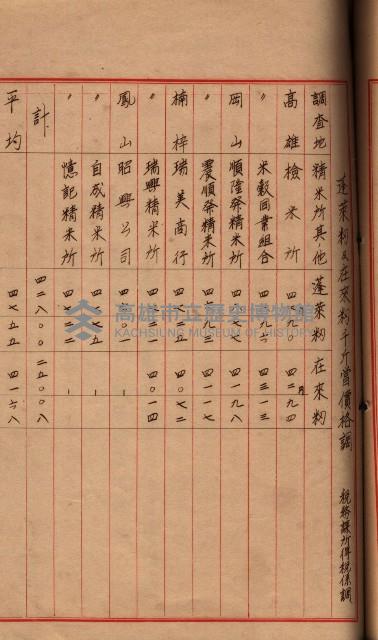 蓬萊籾及在來籾千斤當價格調 稅務課所得稅係調
調査地 精米所其ノ他 蓬萊籾 在來籾
高雄檢米所 四二九四
〃 米穀同業組合 四三一三
岡山 順隆發精米所 四一九八
〃 震順發精米所 四一一七
楠梓 瑞美商行 四〇七二
〃 瑞興精米所 四〇一四
鳳山 昭興公司 ｜
〃 自成精米所 ｜
〃 憶記精米所 ｜
計 四二八〇〇 二五〇〇八
平均 四七五五 四一六八
高雄市立歷史博物館
KAOHSIUNG MUSEUM OF HISTORY